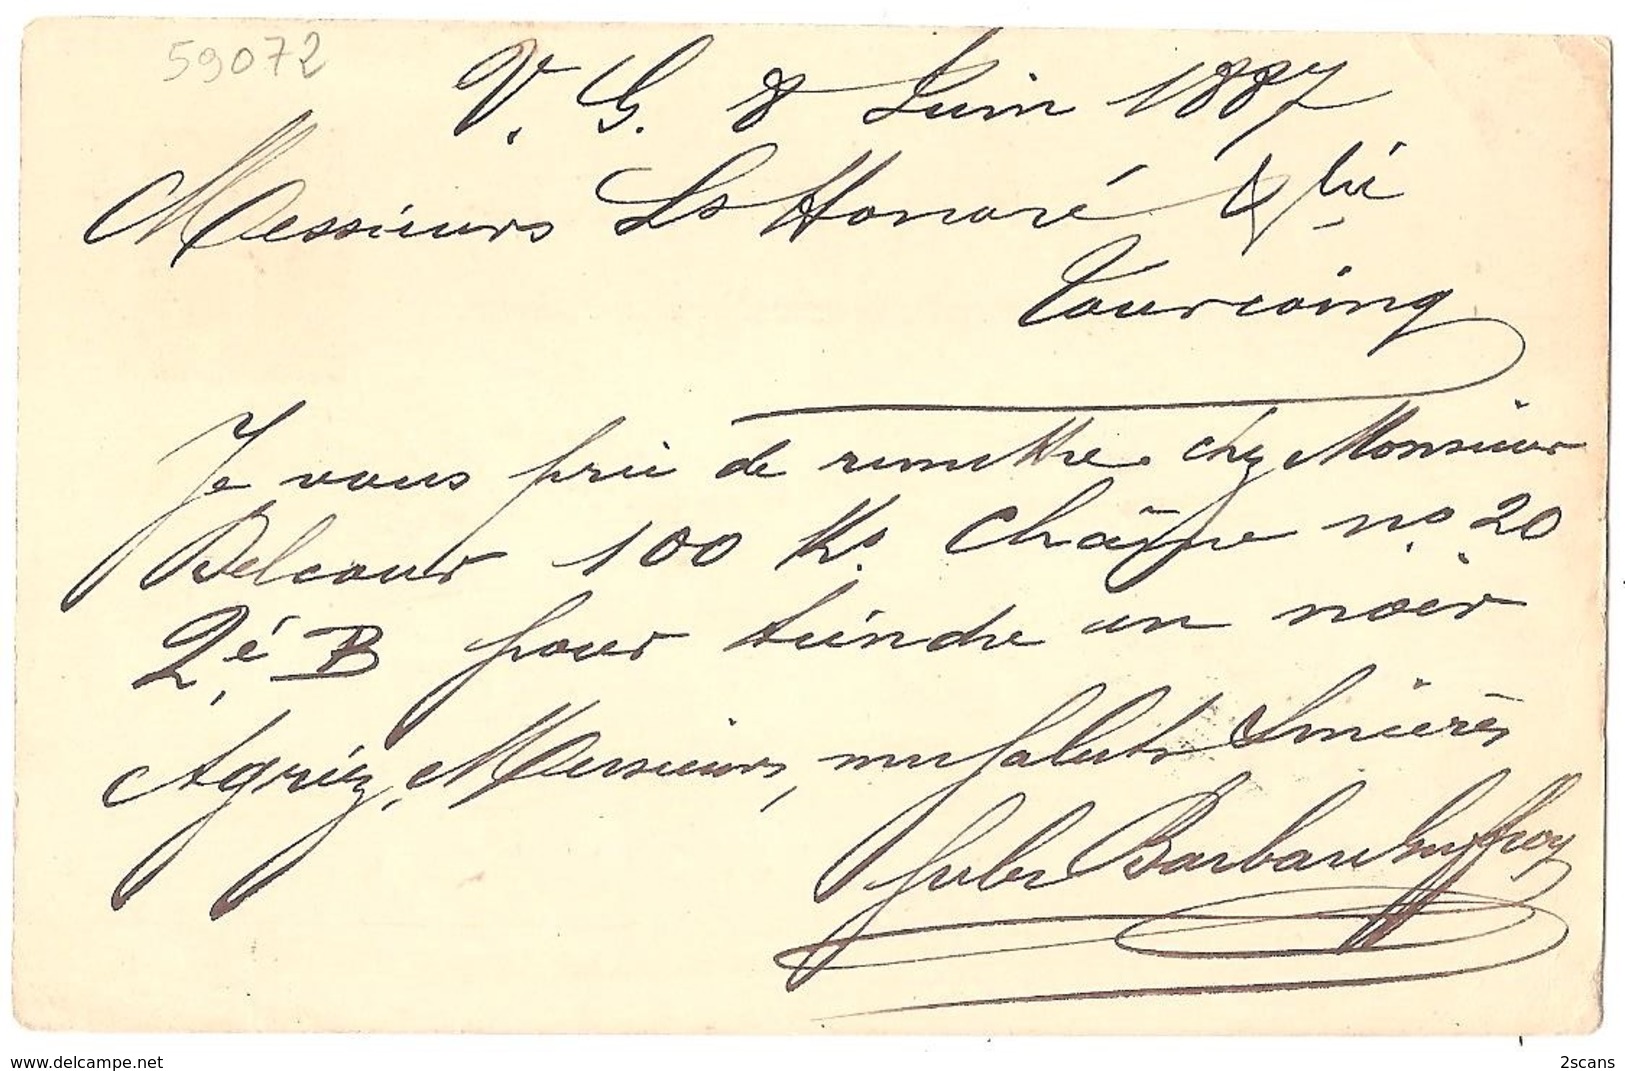 59072
V. G. 8 Juin 1887
Messieurs Ls Honoré & Cie
Tourcoing
Je vous prie de remettre chez Monsieur
Delcour 100 Ks. Chaîne no. 20
2é B pour teindre en noir
Agréez, Messieurs, mes saluts sincères
Jules
www.delcampe.net
2scans